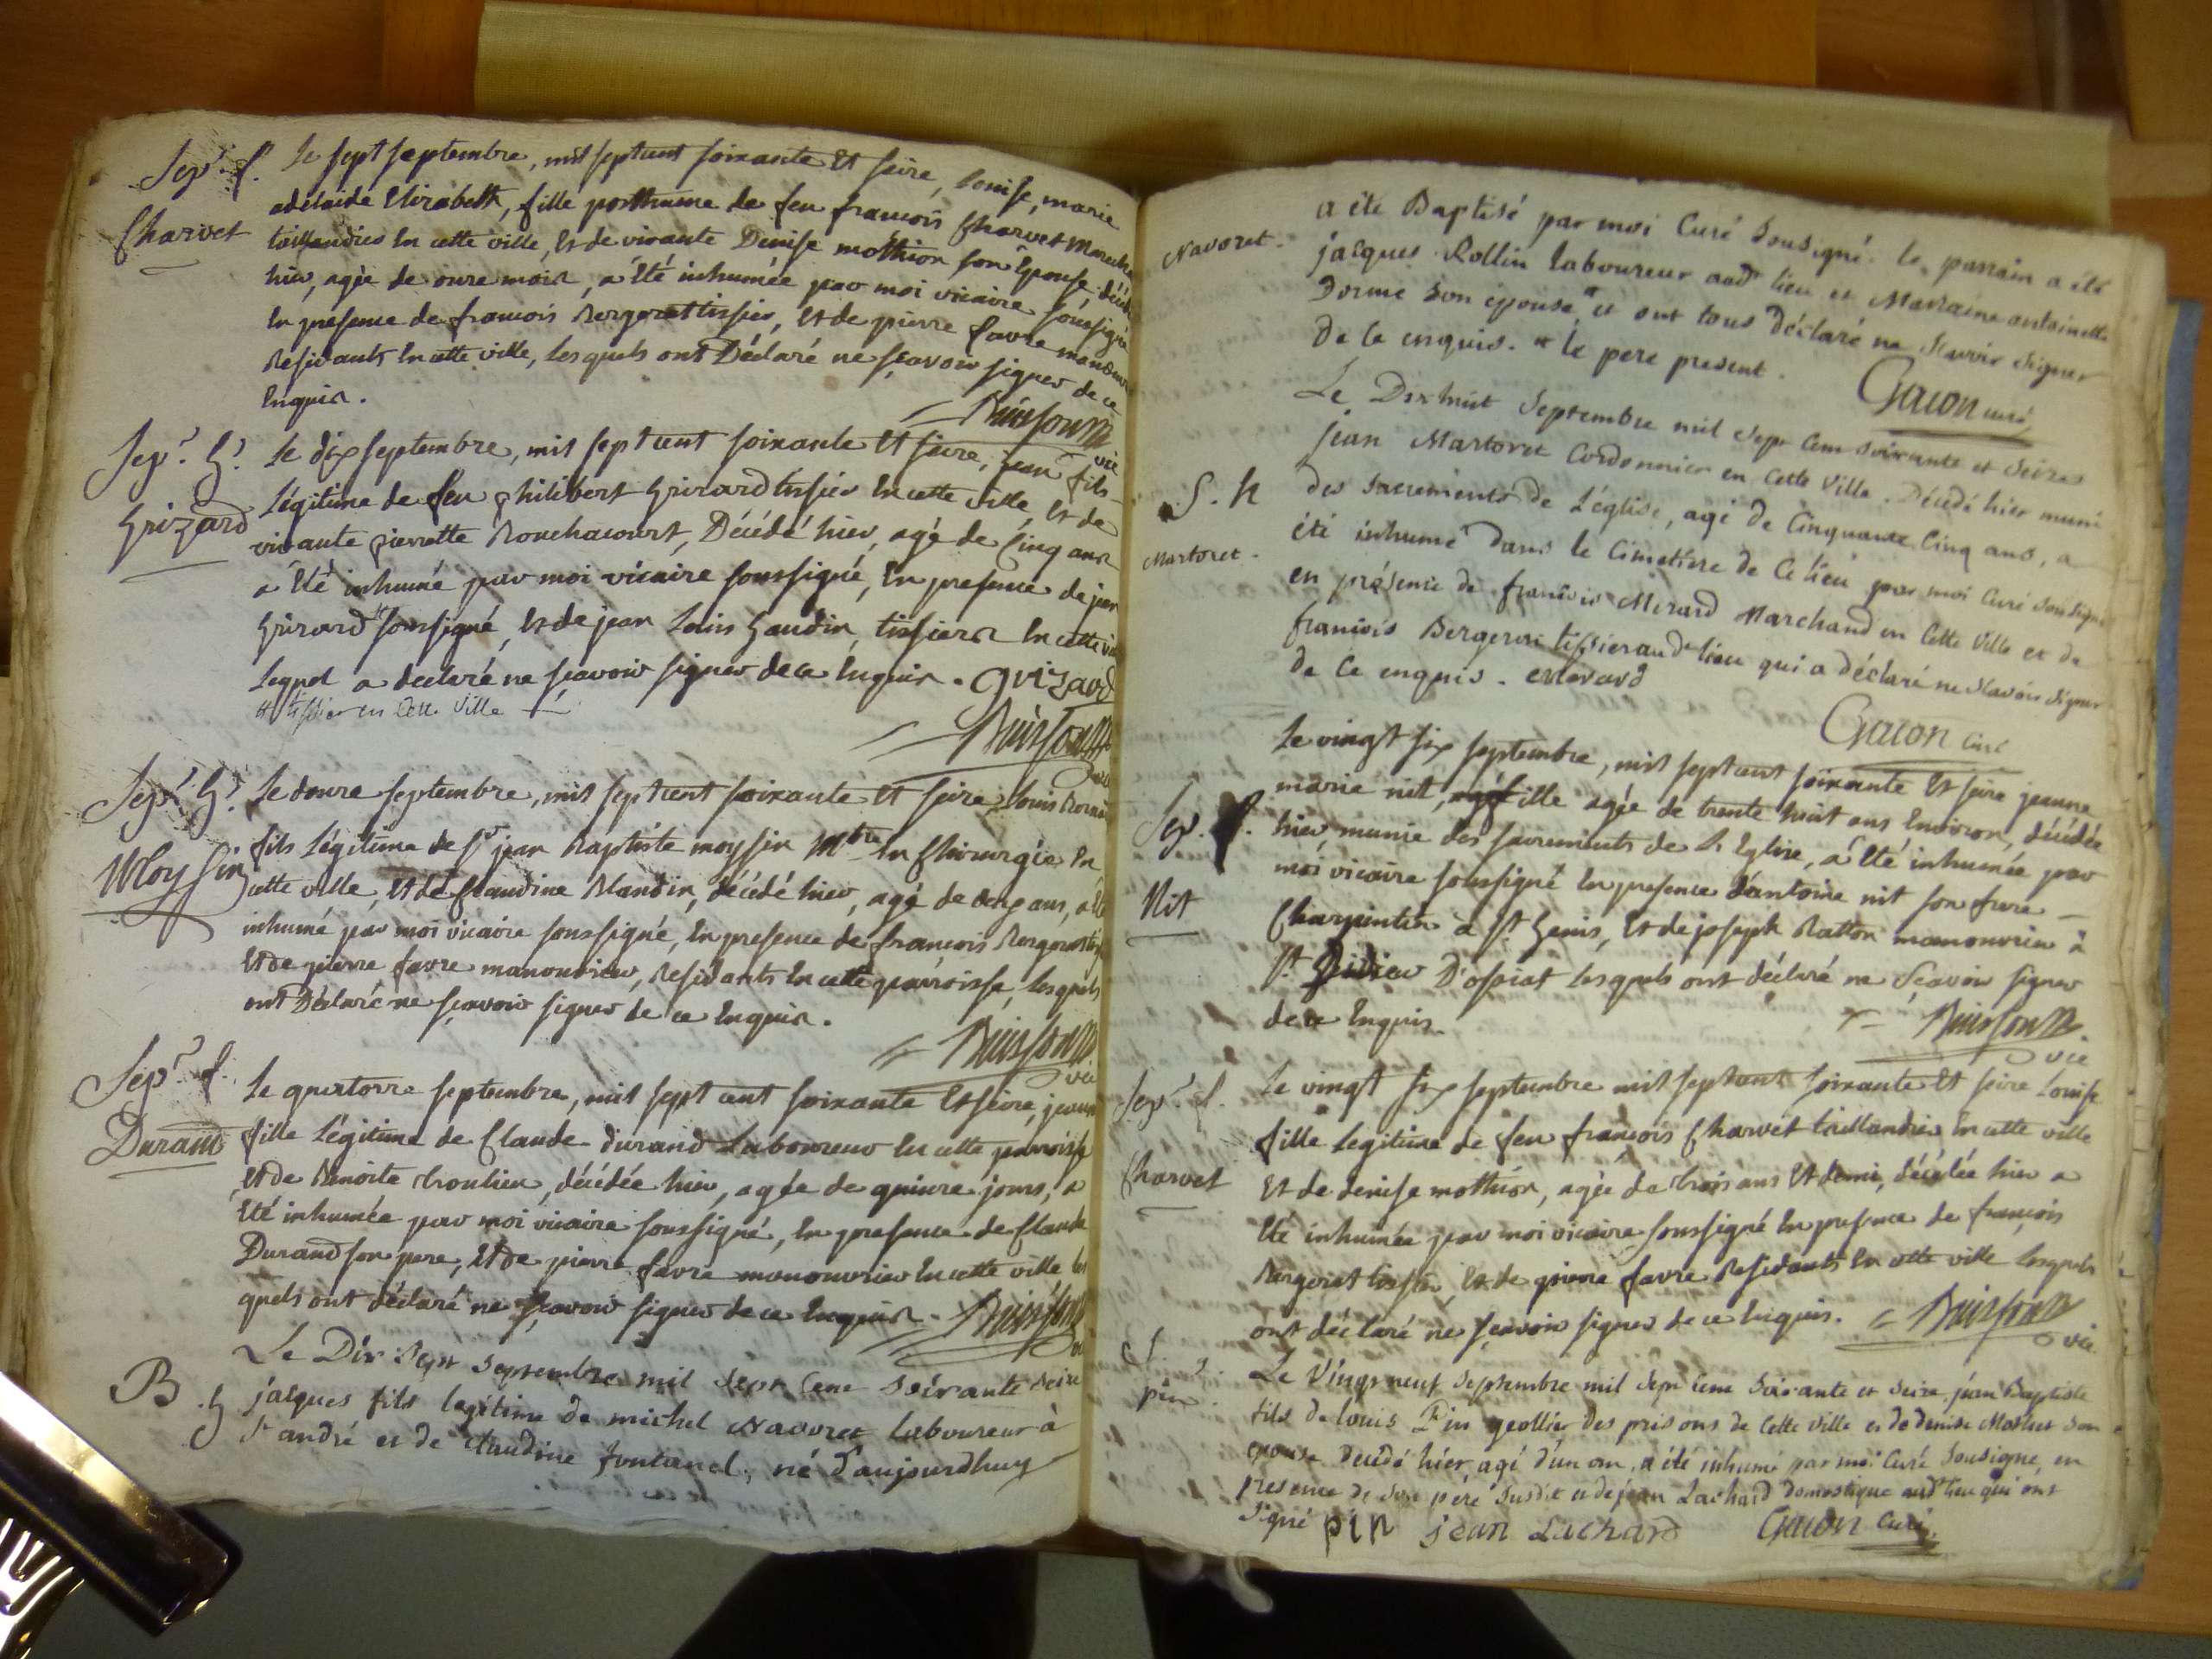 Sep.r f.
Charvet
Le sept septembre, mil sept cent soixante et seize, Louise, marie
adelaide Elizabeth, fille posthume de feu francois Charvet
taillandier en cette ville, et de vivante Denise mothion son Epouse, décédée
hier, agée de onze mois, a été inhumée par moi vicaire soussigné
en presence de francois Bergeret tissier, et de pierre favre
Residants en cette ville, lesquels ont Déclaré ne sçavoir signer de ce
Enquis.
Buisson vic
Sep.r G.
Grizard
Le dix septembre, mil sept cent soixante et seize, jean fils
Légitime de feu philibert Grizard tissier en cette ville, et de
vivante pierrette Bouchacourt, Décédé hier, agé de cinq ans
a été inhumé par moi vicaire soussigné, en presence de jean
Grizard # soussigné, et de jean Louis Gaudin, tissiers en cette
Lequel a declaré ne sçavoir signer de ce enquis. grizard
# tissier en Cette Ville
Buisson vic
Sep.r G.
Moyssin
Le douze septembre, mil sept cent soixante et seize, Louis
fils Légitime de Sr jean Baptiste moyssin Mtre en Chirurgie en
cette ville, et de Claudine Blandin, décédé hier, agé de ans, a été
inhumé par moi vicaire soussigné, en presence de françois Bergeret
et de pierre favre manouvrier, Residants en cette parroisse, lesquels
ont Déclaré ne sçavoir signer de ce Enquis.
Buisson vic
Sep.r f.
Durand
Le quatorze septembre, mil sept cent soixante et seize, jeanne
fille Légitime de Claude durand Laboureur en cette parroisse
et de Benoite, décédée hier, agée de quinze jours, a
été inhumée par moi vicaire soussigné, en presence de Claude
Durand son pere, et de pierre favre manouvrier en cette ville les
quels ont déclaré ne sçavoir signer de ce Enquis. Buisson vic
B. G
Le Dix Sept Septembre mil Sept Cent Soixante Seize
jacques fils legitime de michel Navoret Laboureur à
St andré et de Claudine fontanel, né D'aujourdhuy
Navoret.
a été Baptisé par moi Curé Sousigné. le parrain a été
jacques Rollin Laboureur aud. lieu et Marraine antoinette
Dorme Son épouse # et ont tous déclaré ne Scavoir Signer
de Ce enquis. # le pere present.
Gacon curé
S. h
Martoret.
Le Dix huit Septembre mil Sept Cent Soixante et Seize
jean Martoret Cordonnier en Cette Ville. Décédé hier muni
des Sacrements de L'église, agé de Cinquante Cinq ans, a
été inhumé dans le Cimetière de Ce lieu par moi Curé Sousigné
en présence de françois Merard Marchand en Cette Ville et de
francois Bergeret tissier aud. lieu qui a déclaré ne Scavoir Signer
de Ce enquis. Merard
Gacon Curé
Sep. f.
Nit
Le vingt six septembre, mil sept cent soixante et seize jeanne
marie nit, fille agée de trente huit ans Environ, décédée
hier, munie des sacrements de L'Eglise, a été inhumée par
moi vicaire soussigné en presence d'antoine nit son frere
Charpentier à St Genis, et de joseph Ratton manouvrier à
St Didier D'ossiat lesquels ont déclaré ne Sçavoir signer
de ce Enquis.
Buisson vic
Sep.r f.
Charvet
Le vingt six septembre mil sept cent soixante et seize Louise
fille legitime de feu françois Charvet taillandier en cette ville
Et de denise mothion, agée de trois ans et demi, décédée hier a
Eté inhumée par moi vicaire soussigné en presence de françois
Bergeret tissier, et de pierre favre Residants en cette ville lesquels
ont déclaré ne sçavoir signer de ce Enquis. Buisson vic
S.
pin.
Le Vingt neuf Septembre mil Sept Cent Soixante et Seize jean Baptiste
fils de louis Pin geollier des prisons de Cette Ville et de denise Son
epouse décédé hier, agé d'un an, a été inhumé par moi Curé Sousigné, en
presence de Son pere Susdit et de jean Lachard domestique aud. lieu qui ont
Signé pin jean Lachard Gacon Curé